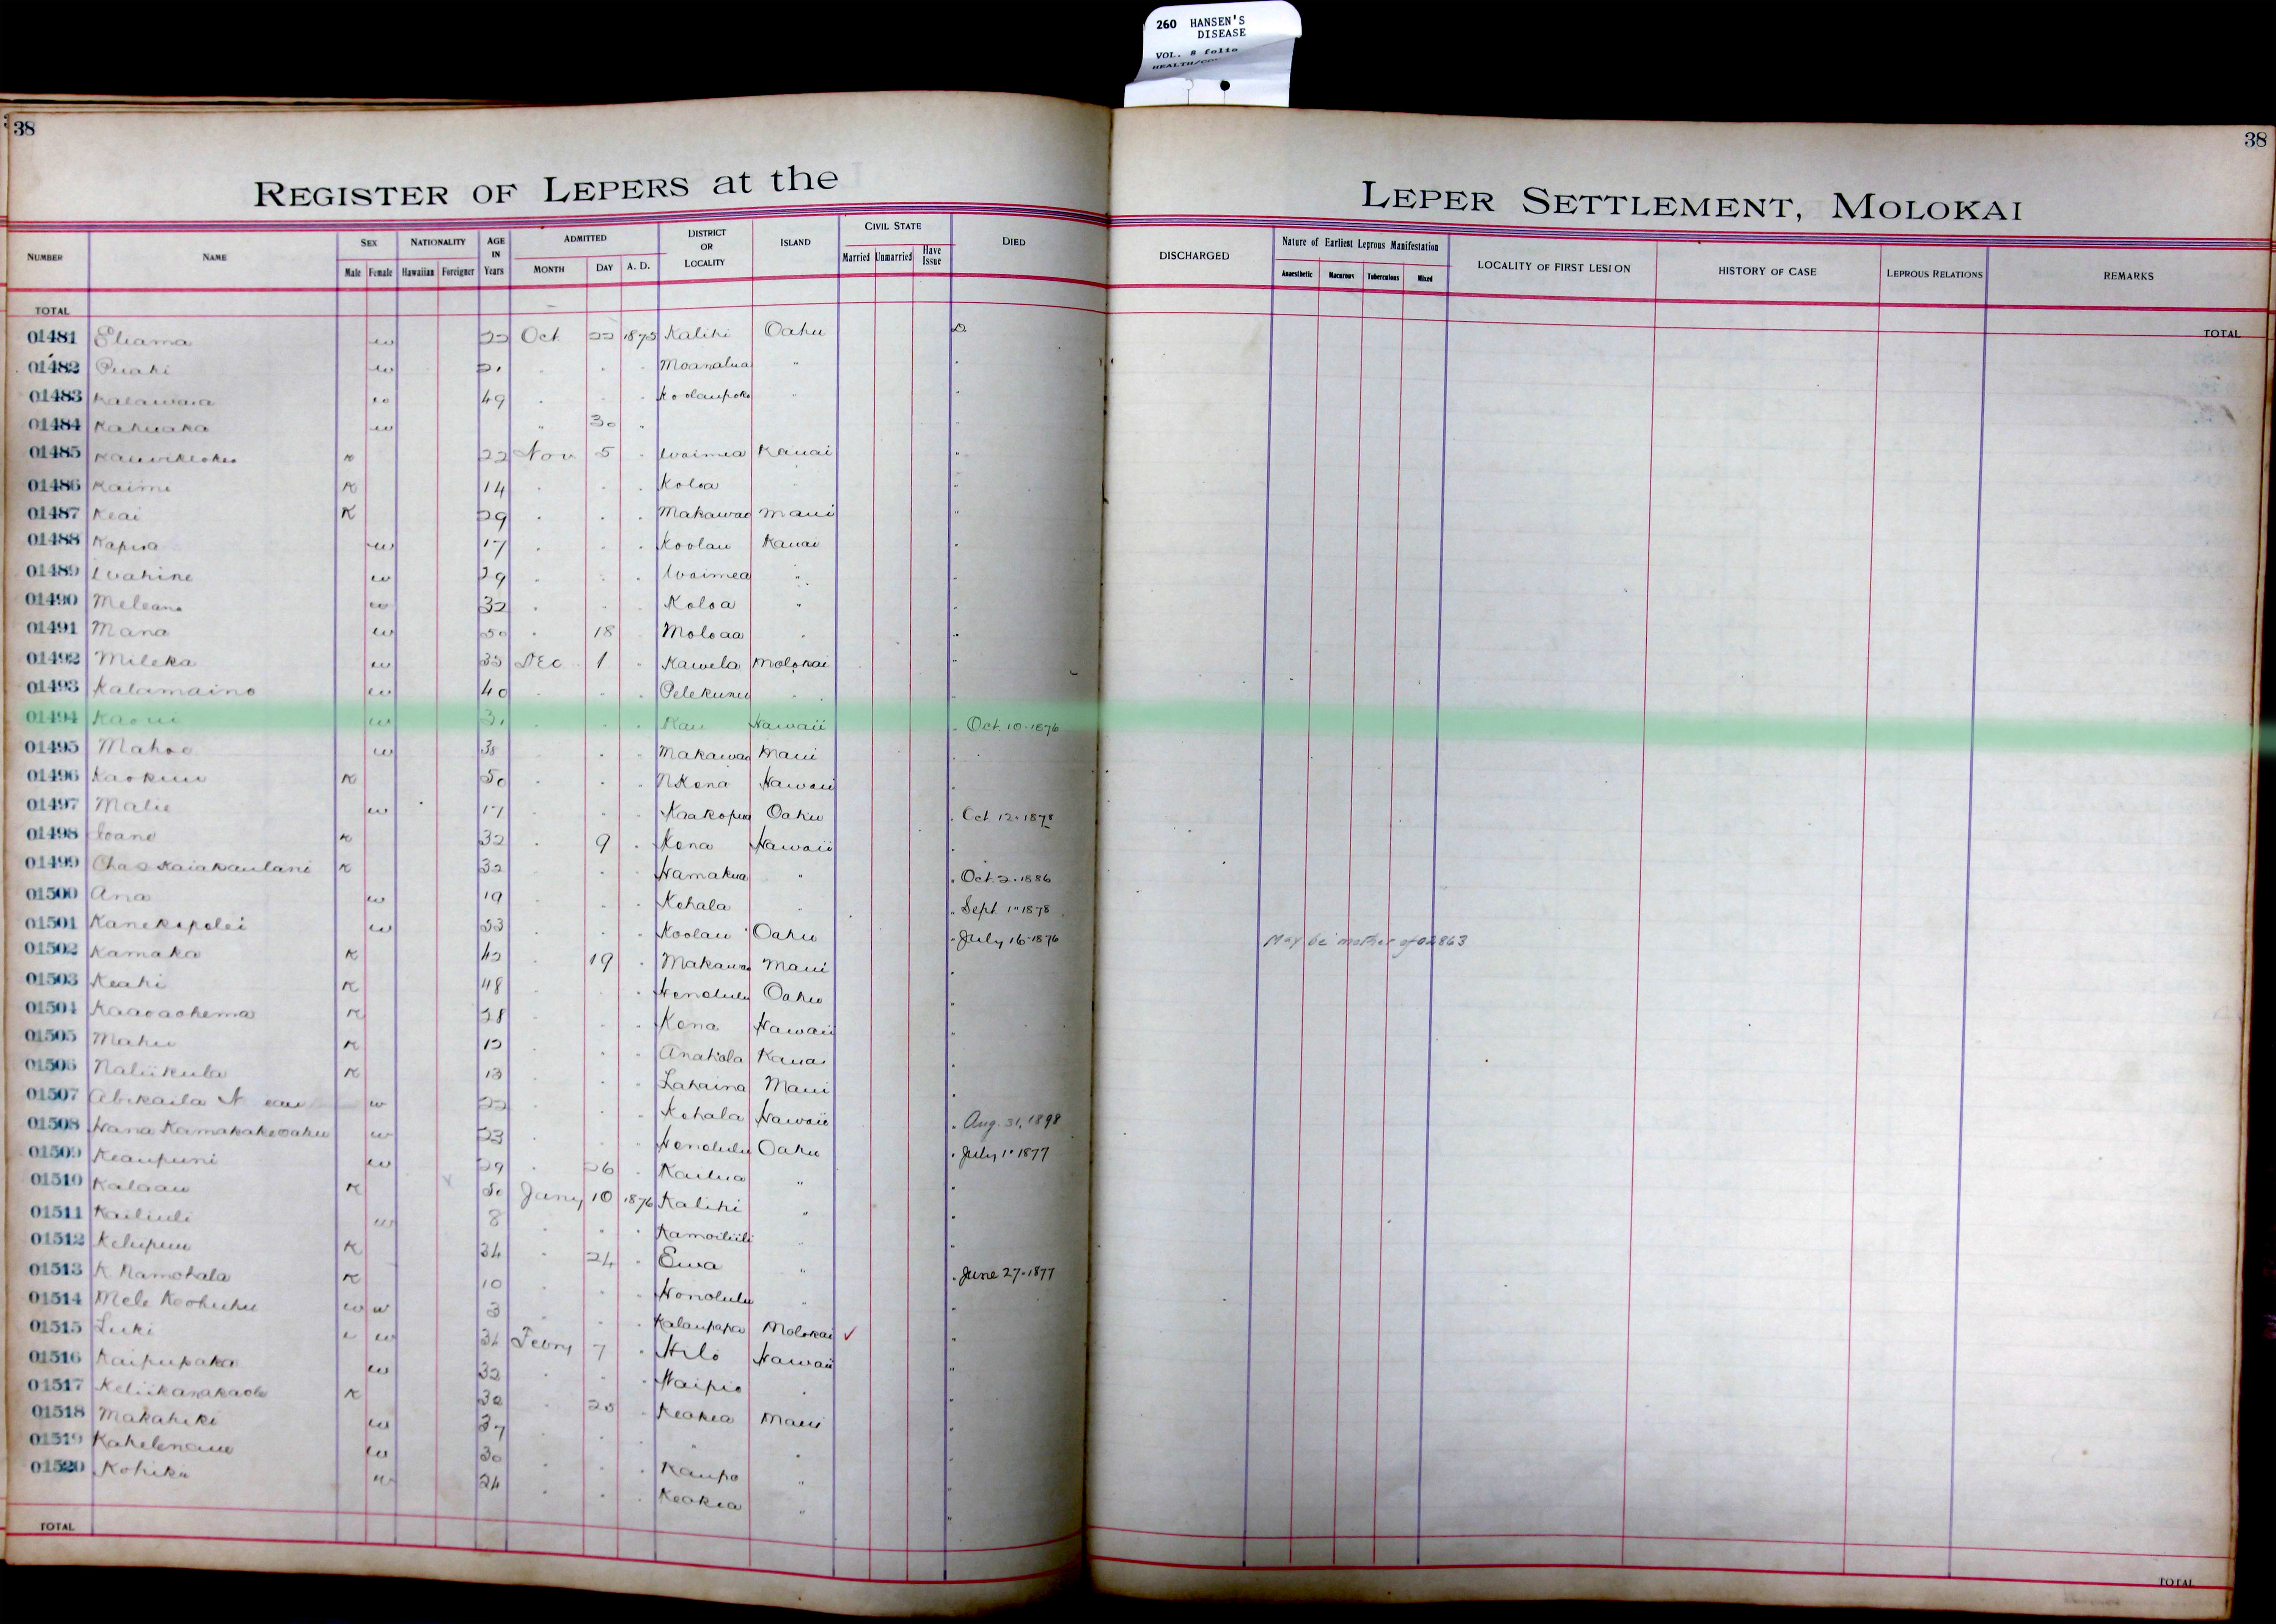 260 HANSEN'S
DISEASE
VOL. 8 folio
38
38
REGISTER OF LEPERS at the LEPER SETTLEMENT, MOLOKAI
NUMBER NAME SEX NATIONALITY AGE IN Years ADMITTED DISTRICT OR LOCALITY ISLAND CIVIL STATE DIED DISCHARGED Nature of Earliest Leprous Manifestation LOCALITY OF FIRST LESION HISTORY OF CASE LEPROUS RELATIONS REMARKS
Male Female Hawaiian Foreigner MONTH DAY A. D. Married Unmarried Have Issue Anaesthetic Macurous Tuberculous Mixed
TOTAL TOTAL
01481 Eliama w 22 Oct 22 1875 Kalihi Oahu D
01482 Puahi w 21 " " " Moanalua "
01483 Kalawaia w 49 " " " Koolaupoko "
01484 Kahuaka w " 30 "
01485 K 22 Nov 5 " Waimea Kauai "
01486 Kaimi K 14 " " " Koloa "
01487 Keai K 29 " " " Makawao Maui "
01488 Kapua w 17 " " " Koolau Kauai "
01489 Wahine w 29 " " " Waimea " "
01490 Meleana w 32 " " " Koloa " "
01491 Mana w 50 " 18 " Moloaa " "
01492 Mileka w 35 Dec 1 " Kawela Molokai "
01493 Kalamaino w 40 " " " Pelekunu " "
01494 Kaoui w 31 " " " Kau Hawaii " Oct. 10-1876
01495 Mahoe w 38 " " " Makawao Maui "
01496 Kaokuu K 50 " " " N Kona Hawaii "
01497 Malie w 17 " " " Kaakopua Oahu " Oct 12-1878
01498 Ioane K 32 " 9 " Kona Hawaii "
01499 Chas Kaiakaulani K 32 " " " Hamakua " " Oct. 2-1886
01500 Ana w 19 " " " Kohala " " Sept 1-1878
01501 Kanekapolei w 53 " " " Koolau Oahu " July 16-1876 May be mother of 02863
01502 Kamaka K 42 " 19 " Makawao Maui "
01503 Keahi K 48 " " " Honolulu Oahu "
01504 Kaaoaohema K 28 " " " Kona Hawaii "
01505 Mahu K 12 " " " Anahola Kauai "
01506 Naliikula K 13 " " " Lahaina Maui "
01507 Abikaila N w 22 " " " Kohala Hawaii " Aug. 31, 1898
01508 Hana Kamakakeoahu w 23 " " " Honolulu Oahu " July 1-1877
01509 Keaupuni w 29 " 26 " Kailua " "
01510 Kalaau K 50 Jany 10 1876 Kalihi " "
01511 Kailiuli w 8 " " " Kamoiliili " "
01512 Kelupuu K 34 " 24 " Ewa " " June 27-1877
01513 K Namohala K 10 " " " Honolulu " "
01514 Mele Keohuhu w w 3 " " " Kalaupapa Molokai ✓ "
01515 Luki w 34 Febry 7 " Hilo Hawaii "
01516 Kaipupaka w 32 " " " Waipio " "
01517 Keliikanakaole K 30 " 20 " Keokea Maui "
01518 Makahiki w 37 " " " " " "
01519 Kahelenaue w 30 " " " Kaupo " "
01520 Kohika w 24 " " " Keokea " "
TOTAL TOTAL